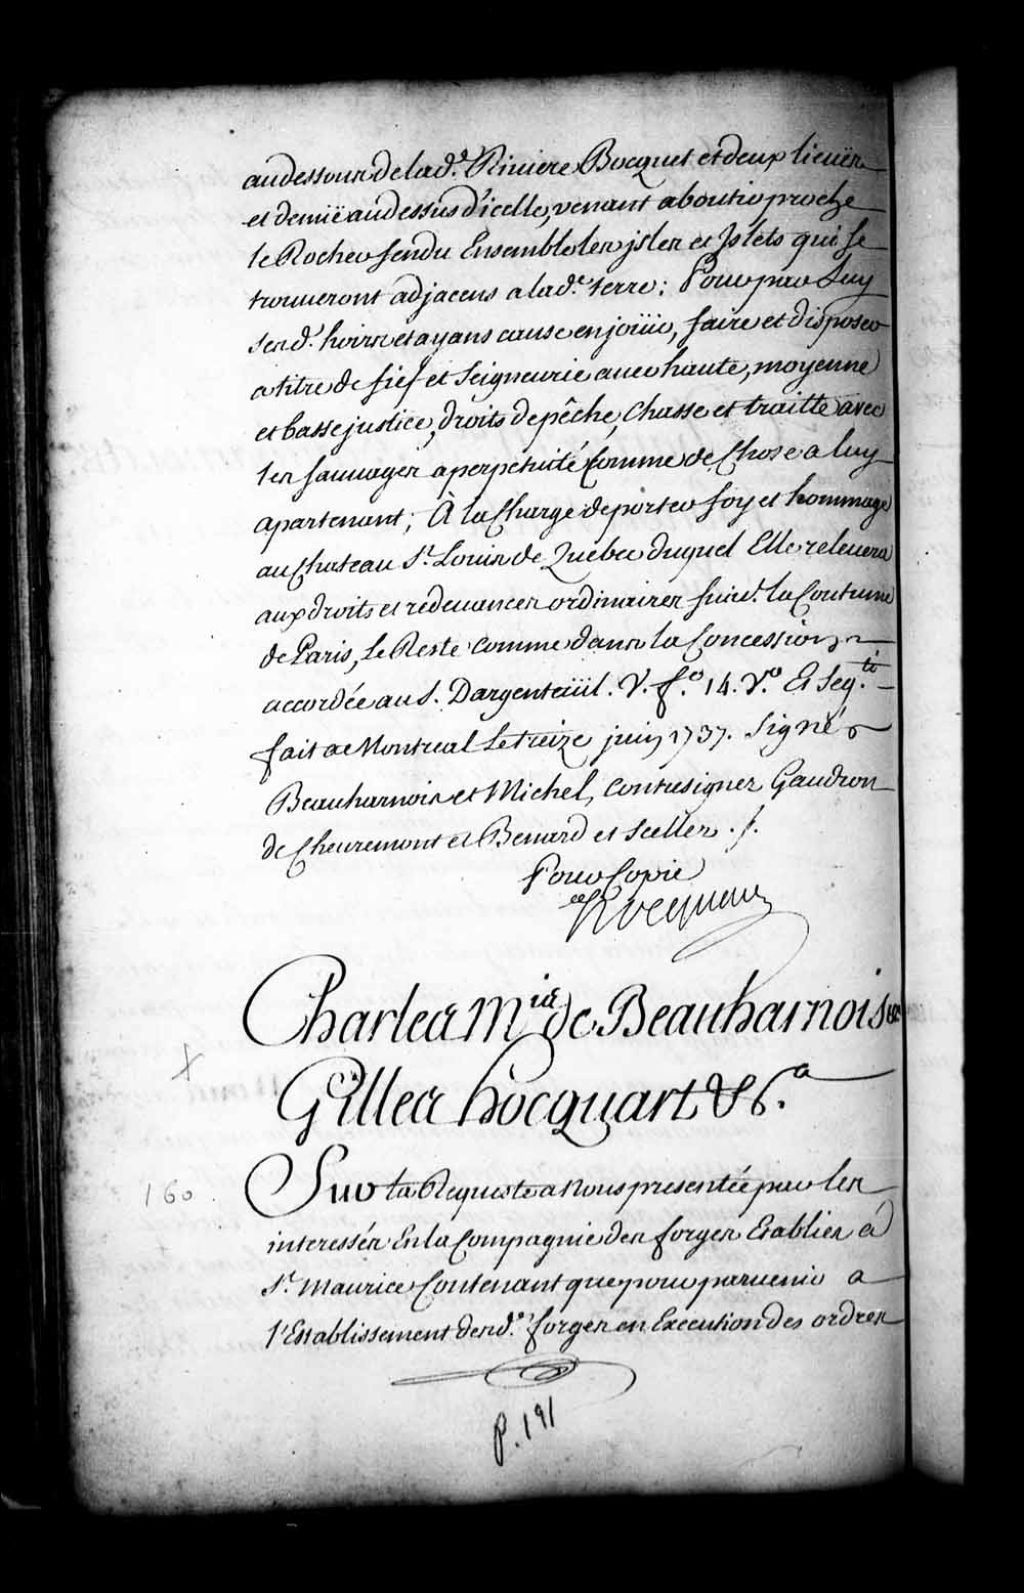 audessous de lad.e Riviere Bocquet et deux lieües
et demië audessus d'icelle, venant aboutir proche
le Rocher fendu Ensemble les jsles et Jslets qui se
trouveront adjacens a lad.e terre; Pour par Luy
ses d.s hoirs et ayans cause en joüir, faire et disposer
a titre de fief et Seigneurie avec haute, moyenne
et basse justice, droits de pêche, Chasse et traitte avec
les sauvages a perpetuité Comme de Chose a luy
apartenant; À la Charge de porter foy et hommage
au Chateau S.t Louis de Quebec duquel Elle relevera
aux droits et redevances ordinaires suiv.t la Coutume
de Paris, Le Reste comme dans la Concession
accordée au S. Dargenteüil. V. f.o 14. V.o Et Seq.ti
fait a Montreal Le treize juin 1737. Signé
Beauharnois et Michel, Contresignez Gaudron
de Chevremont et Benard et Scellés ./.
Pour Copie
Hocquart
Charles M.is de Beauharnois &c
Gilles hocquart &c.a
160. Sur la Requeste a Nous presentée par les
interessés En la Compagnie des forges Etablies á
S.t Maurice Contenant que pour parvenir a
l'Establissement desd.es forges en Execution des ordres
P. 191